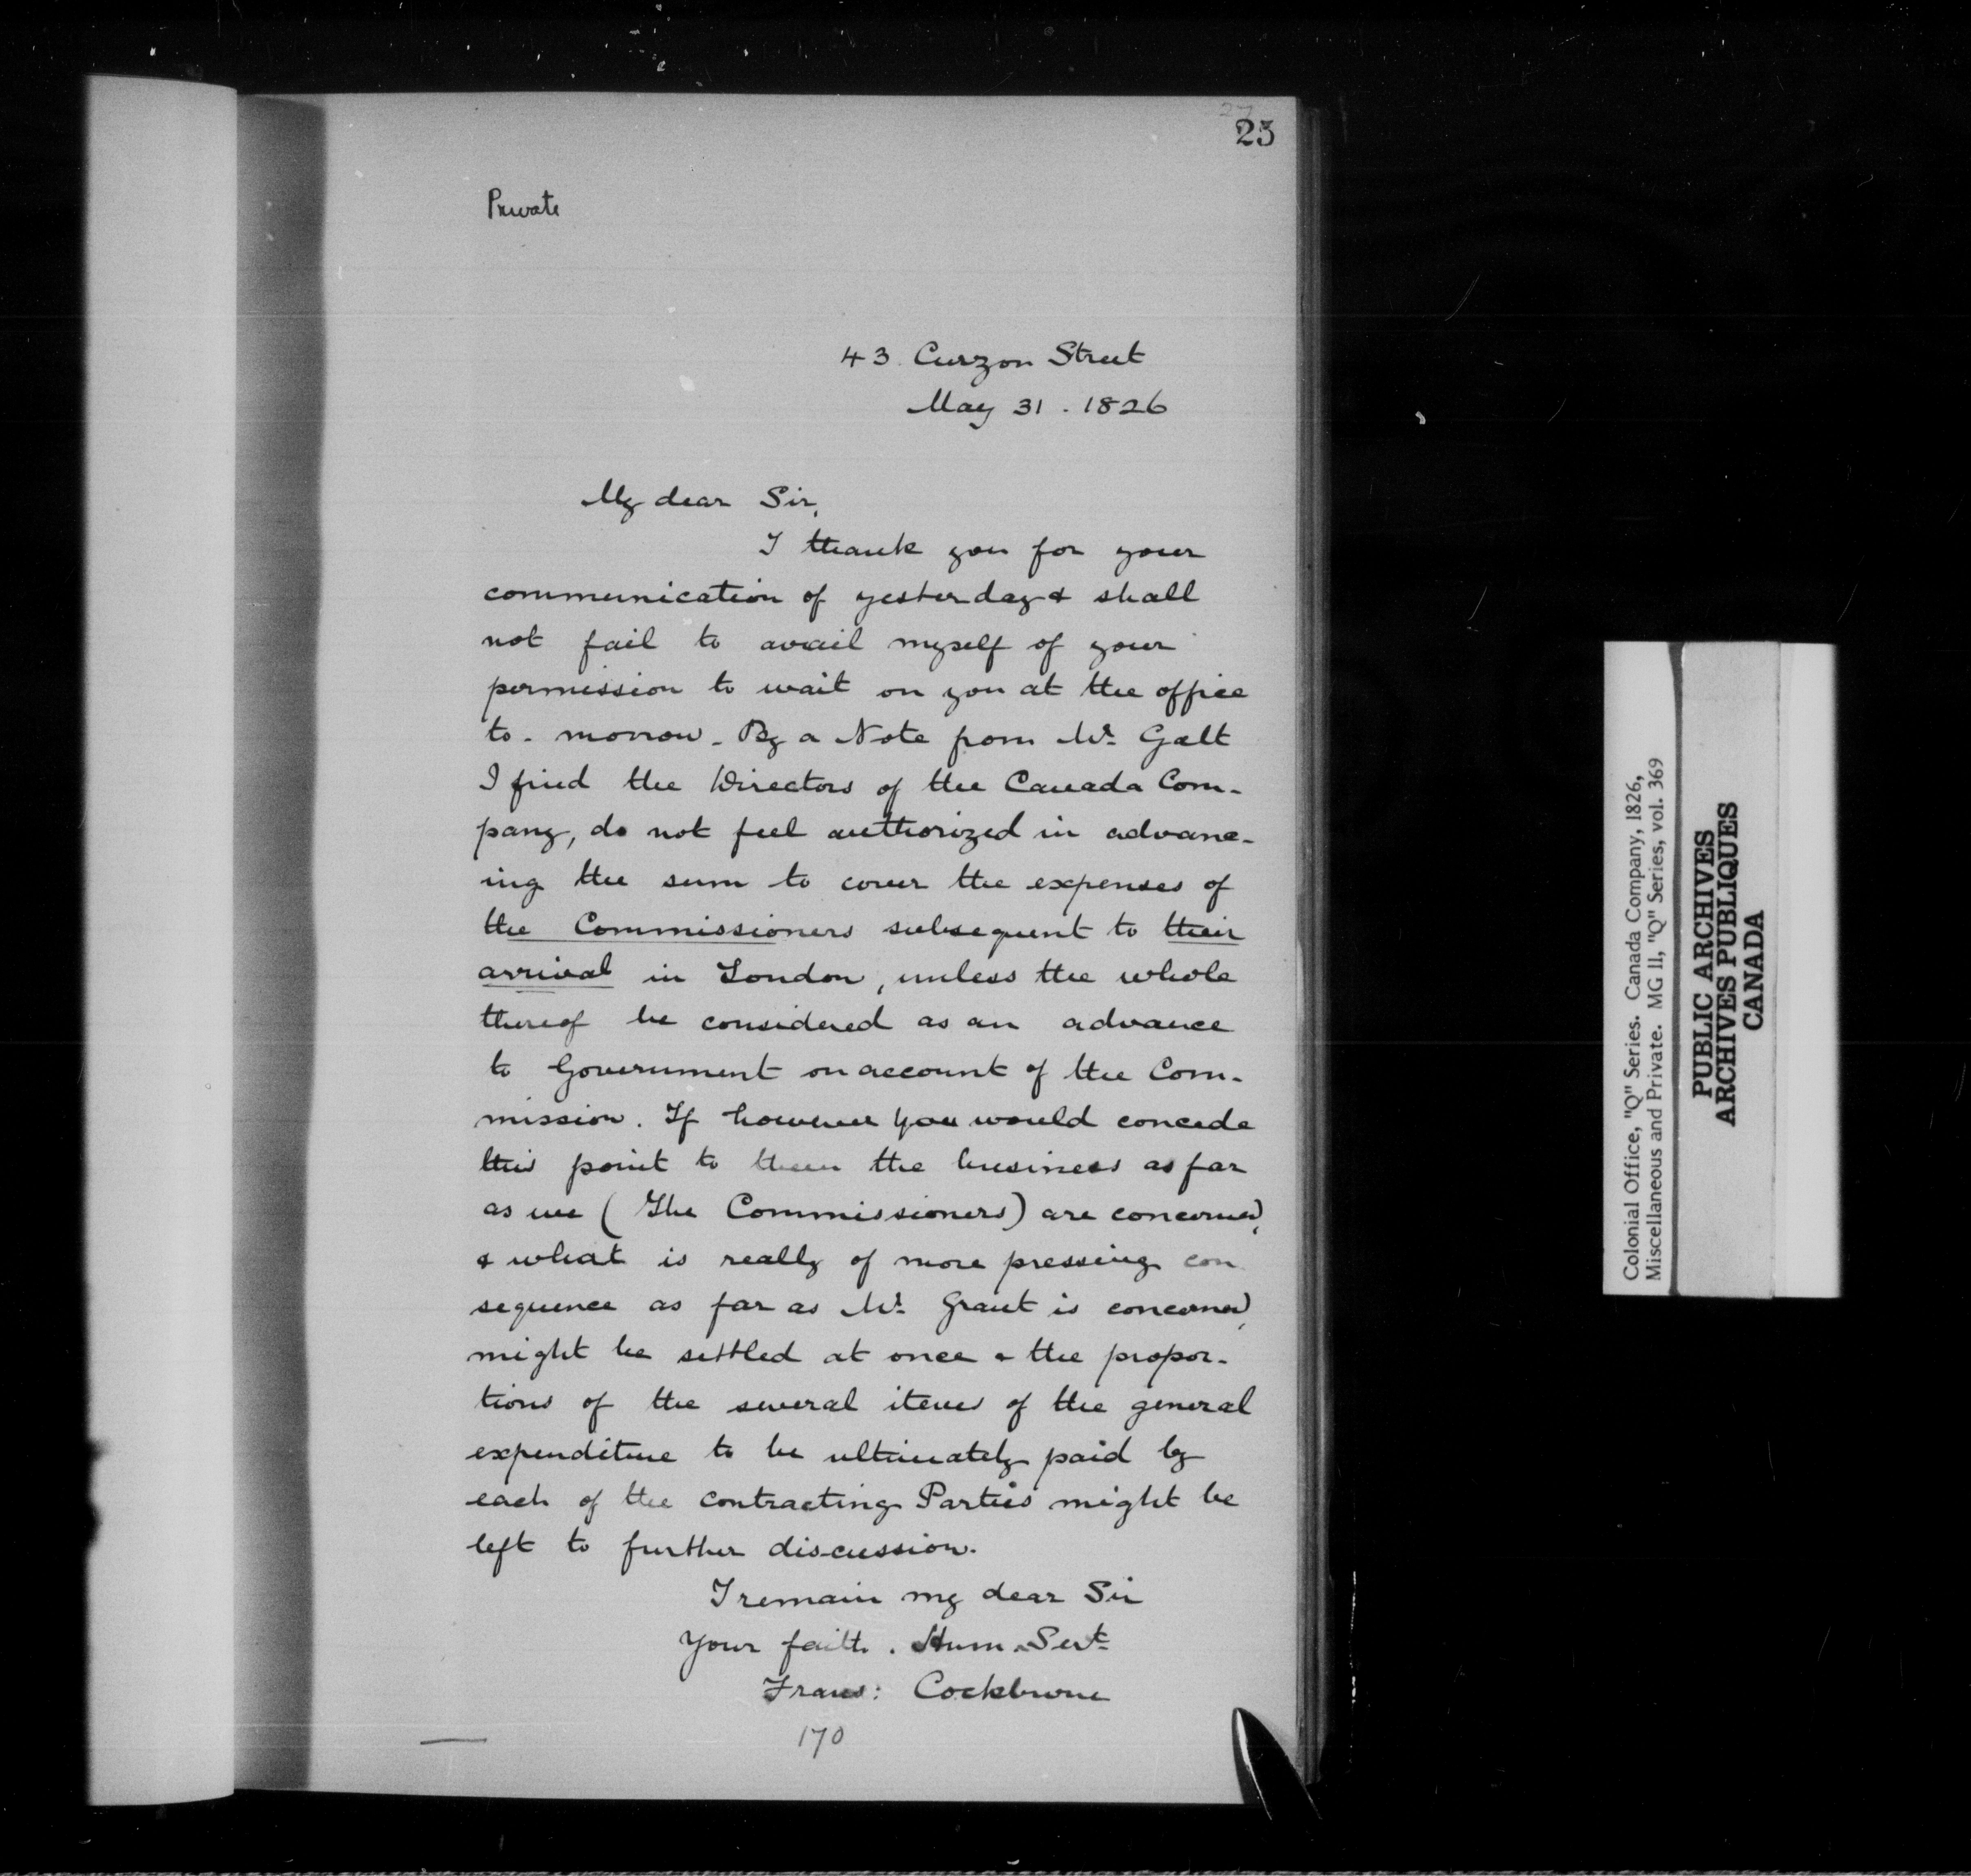 27
25
Private
43. Curzon Street
May 31. 1826
My dear Sir,
I thank you for your
communication of yesterday & shall
not fail to avail myself of your
permission to wait on you at the office
to-morrow. By a Note from Mr. Galt
I find the Directors of the Canada Com-
pany, do not feel authorized in advanc-
ing the sum to cover the expenses of
the Commissioners subsequent to their
arrival in London, unless the whole
thereof be considered as an advance
to Government on account of the Com-
mission. If however you would concede
this point to them the business as far
as we (The Commissioners) are concerned,
& what is really of more pressing con
sequence as far as Mr. Grant is concerned,
might be settled at once & the propor-
tions of the several items of the general
expenditure to be ultimately paid by
each of the contracting Parties might be
left to further discussion.
I remain my dear Sir
Your faith. Hum. Servt.
Frans: Cockburne
170
Colonial Office, "Q" Series. Canada Company, 1826,
Miscellaneous and Private. MG 11, "Q" Series, vol. 369
PUBLIC ARCHIVES
ARCHIVES PUBLIQUES
CANADA